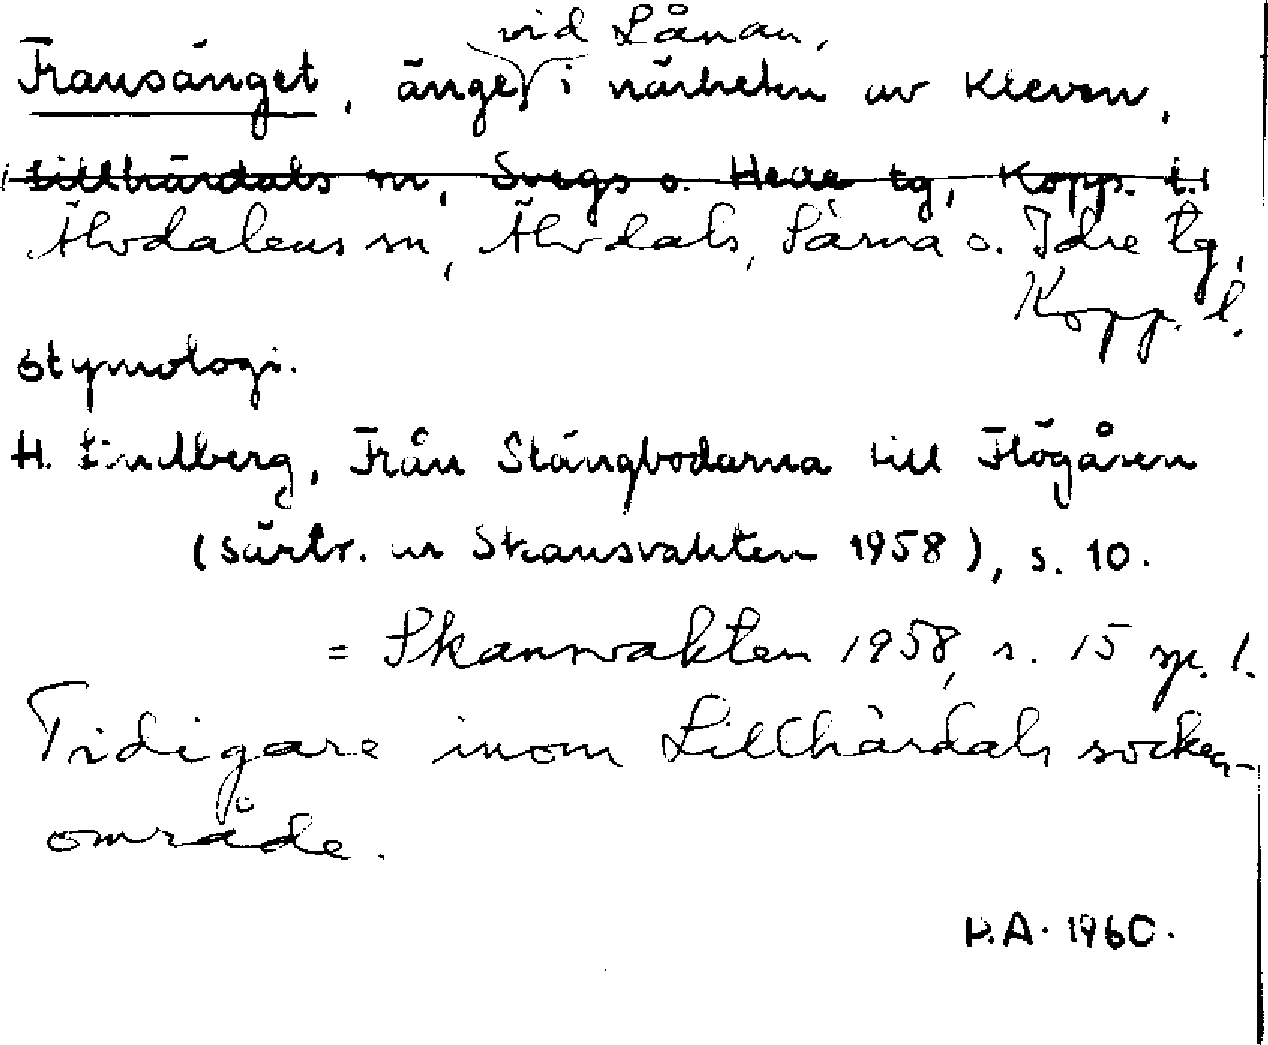 vid Lånan,
Fransänget, änge i närheten av Kleven,
Lillhärdals sn, Svegs o. Hede tg, Kopp. l.
Älvdalens sn, Älvdals, Särna o. Idre tg,
Kopp. l.
etymologi.
H. Lindberg, Från Stängbodarna till Flögåsen
(särtr. ur Skansvakten 1958), s. 10.
= Skansvakten 1958, s. 15 sp. 1.
Tidigare inom Lillhärdals socken-
område.
D.A. 1960.